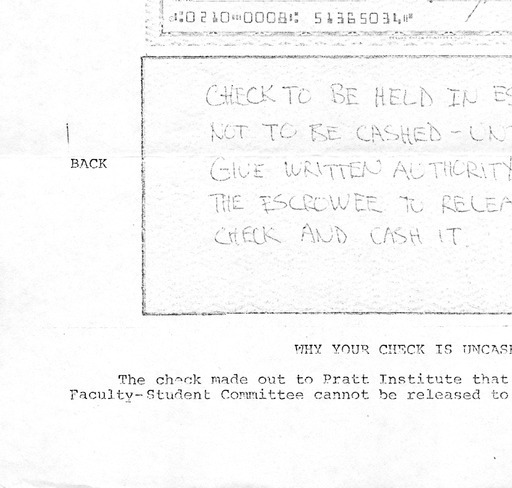 ⑆0210⑉0008⑆ 51385034⑈
CHECK TO BE HELD IN ES
NOT TO BE CASHED - UN
BACK
GIVE WRITTEN AUTHORITY
THE ESCROWEE TO RELEA
CHECK AND CASH IT.
WHY YOUR CHECK IS UNCAS
The check made out to Pratt Institute that
Faculty-Student Committee cannot be released to